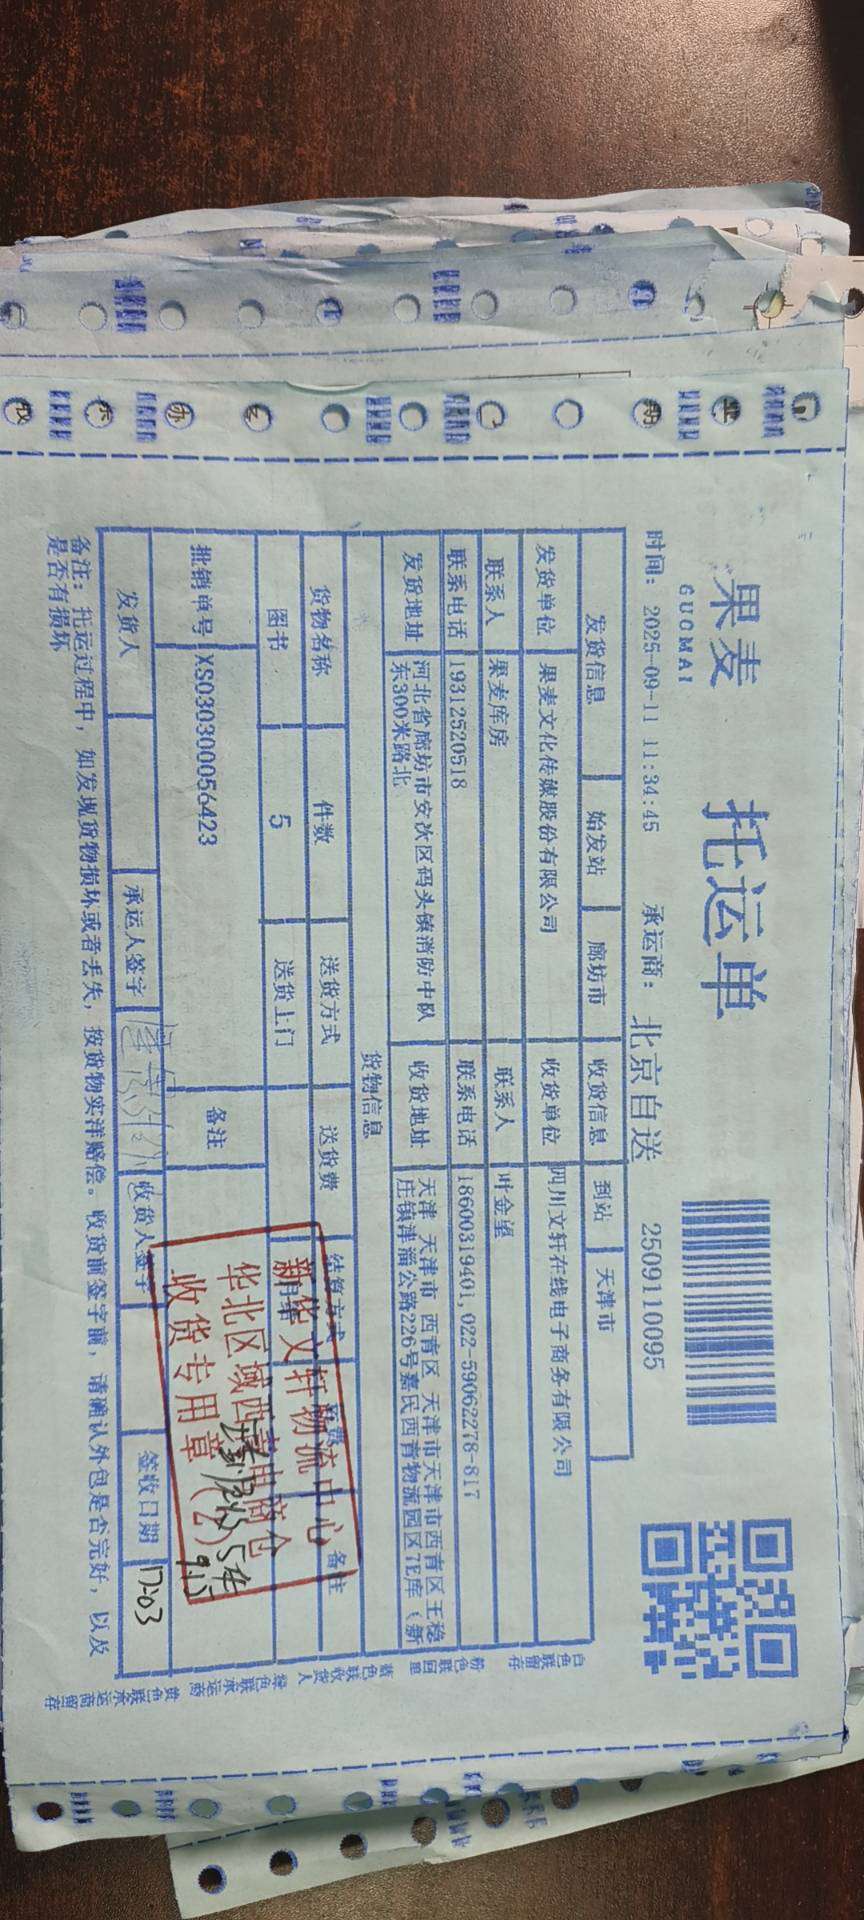 果麦
GUOMAI
托运单
时间: 2025-09-11 11:34:45 承运商: 北京自送 2509110095
发货信息 始发站 廊坊市 收货信息 到站 天津市
发货单位 果麦文化传媒股份有限公司 收货单位 四川文轩在线电子商务有限公司
联系人 果麦库房 联系人 叶金望
联系电话 19312520518 联系电话 18600319401, 022-59062278-817
发货地址 河北省廊坊市安次区码头镇消防中队
东300米路北
收货地址 天津 天津市 西青区 天津市天津市西青区王稳
庄镇津淄公路226号嘉民西青物流园区7E库（新
货物信息
货物名称 件数 送货方式 送货费 结算方式 备注
图书 5 送货上门
批销单号 XS030300056423 备注
发货人 承运人签字 收货人签字 签收日期 17:03
新华文轩物流中心
华北区域西青电商仓
收货专用章（2）
9.15
备注: 托运过程中, 如发现货物损坏或者丢失, 按货物实洋赔偿。收货前签字前, 请确认外包是否完好, 以及
是否有损坏
白色联留存
粉色联回里
蓝色联收货人
绿色联承运商
黄色联承运商留存